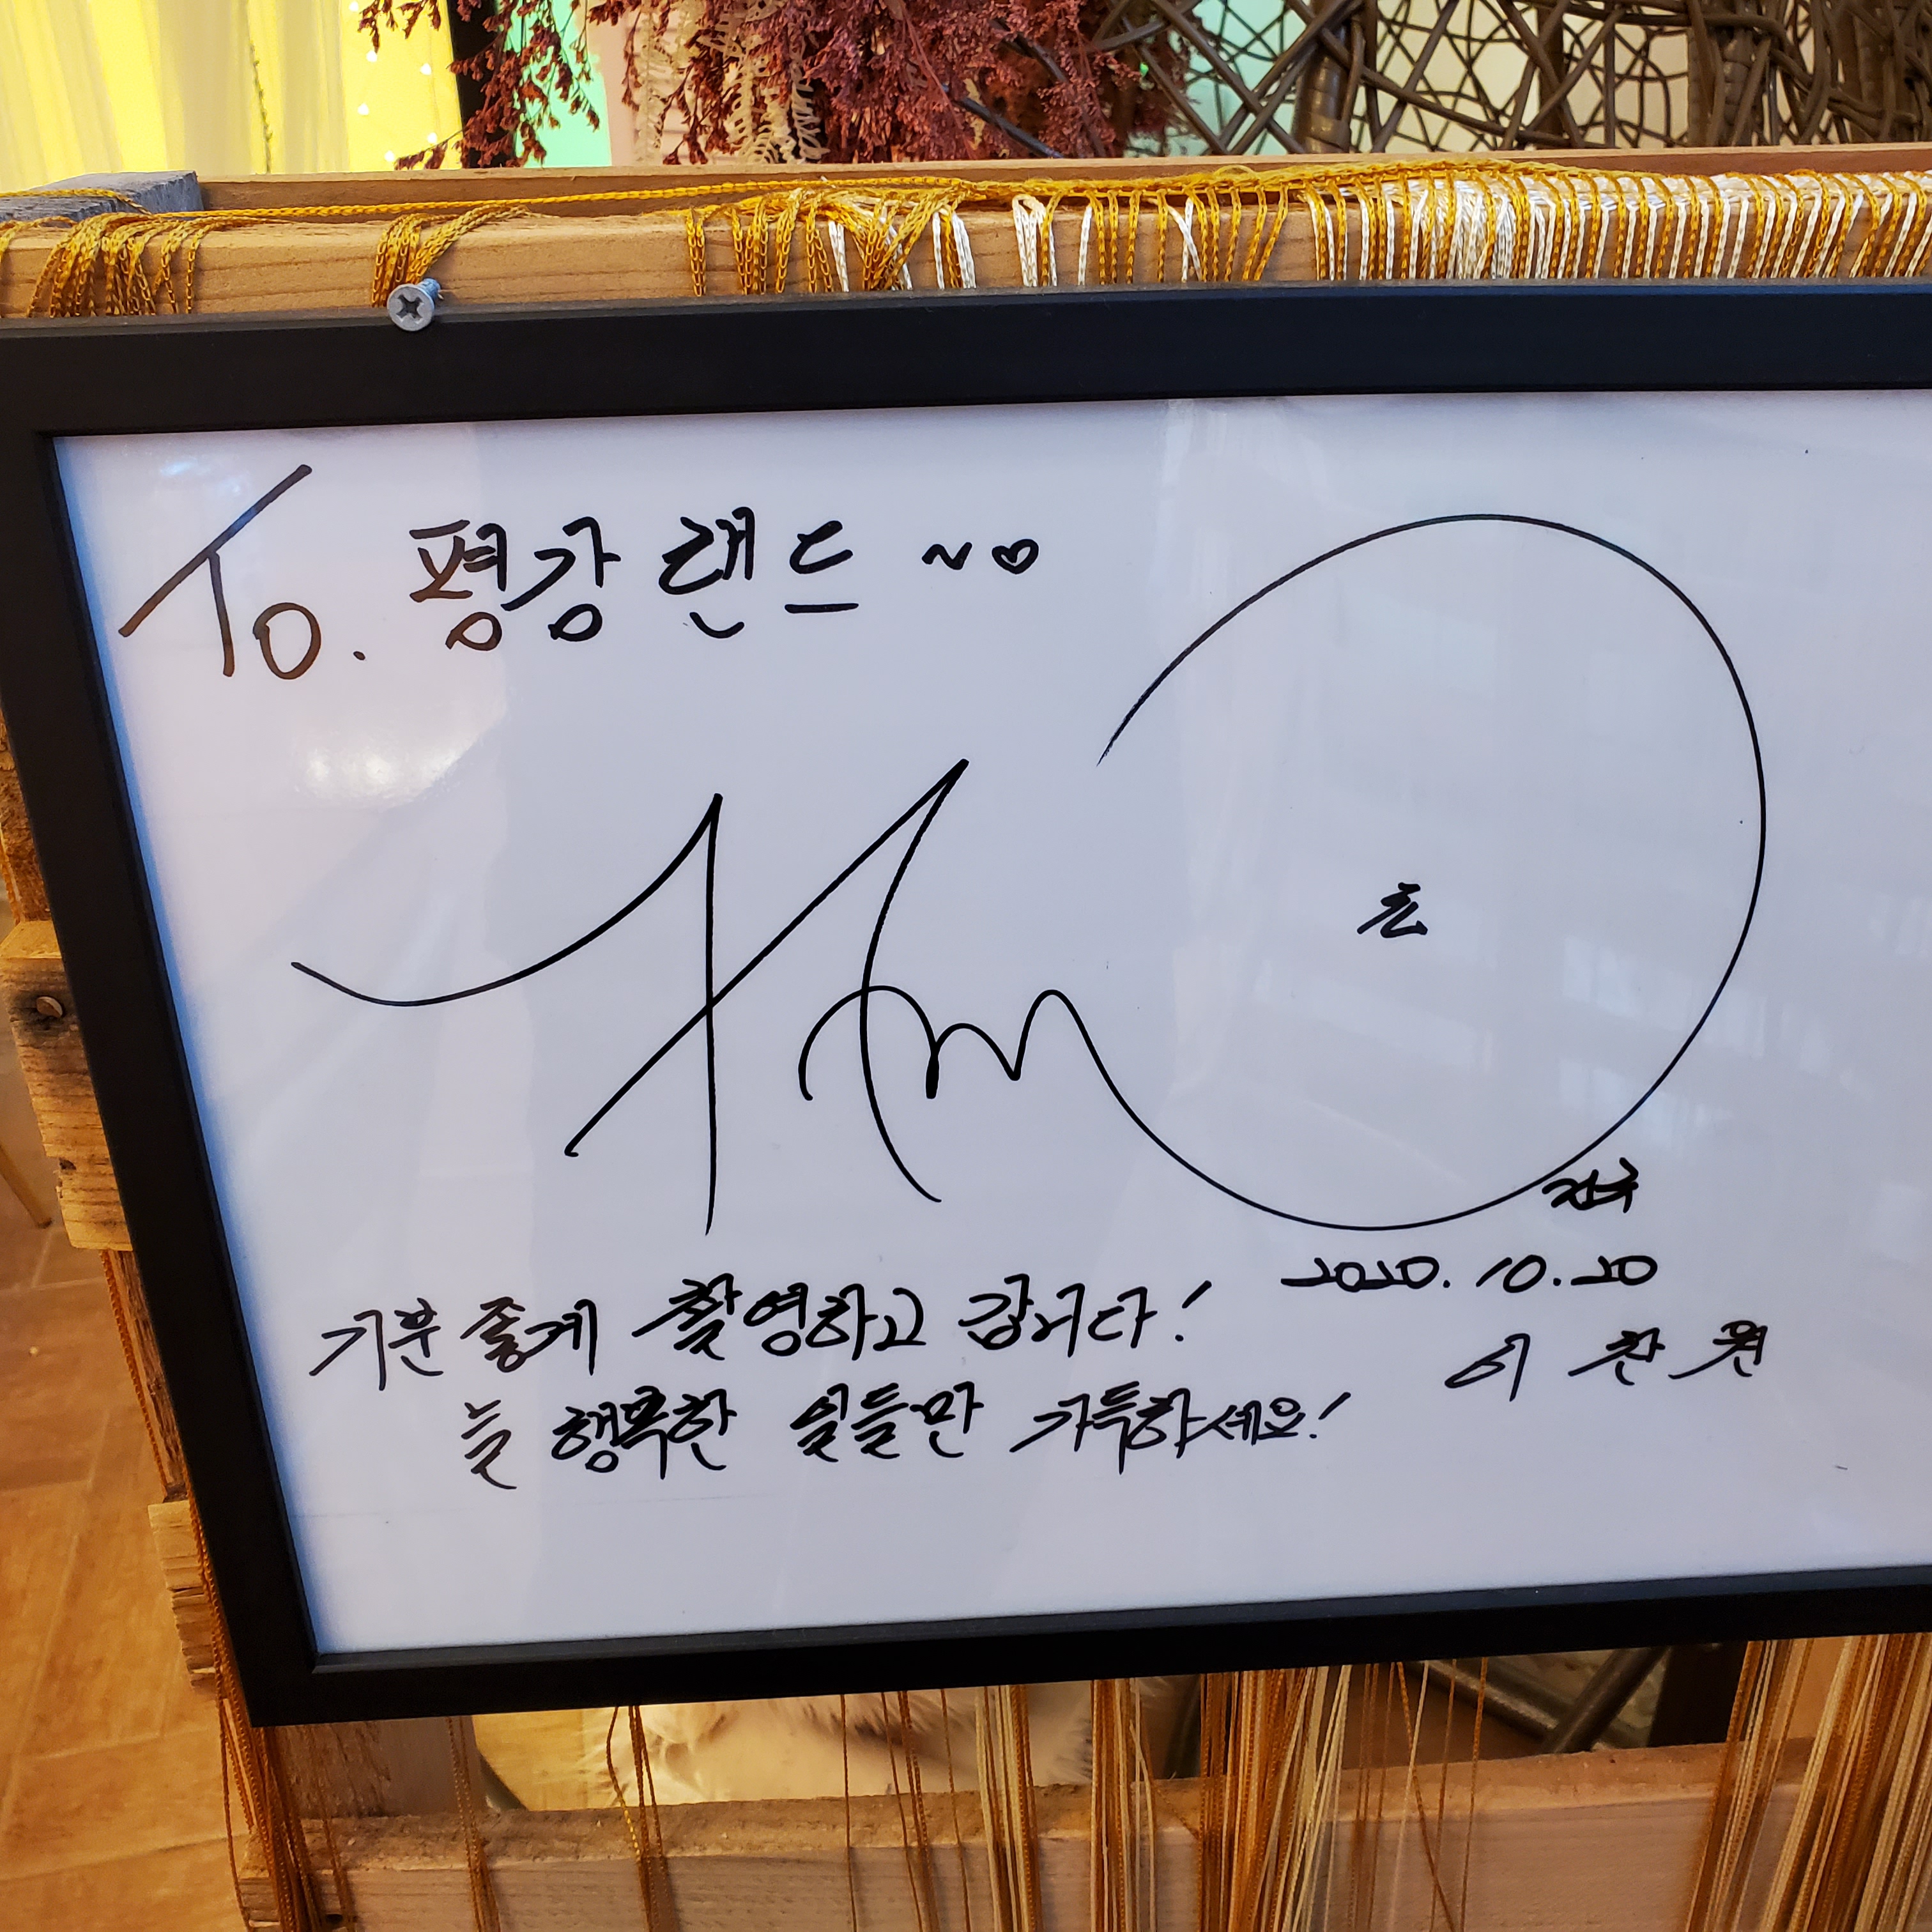 To. 평강랜드 ~♡
찬
2020. 10. 20
기분 좋게 촬영하고 갑니다!
이찬원
늘 행복한 일들만 가득하세요!